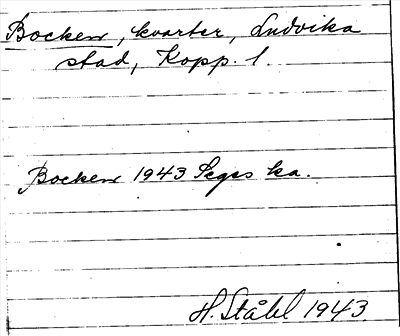 Bocken, kvarter, Ludvika
stad, Kopp. l.
Bocken 1943 Seges ka.
H. Ståhl 1943.